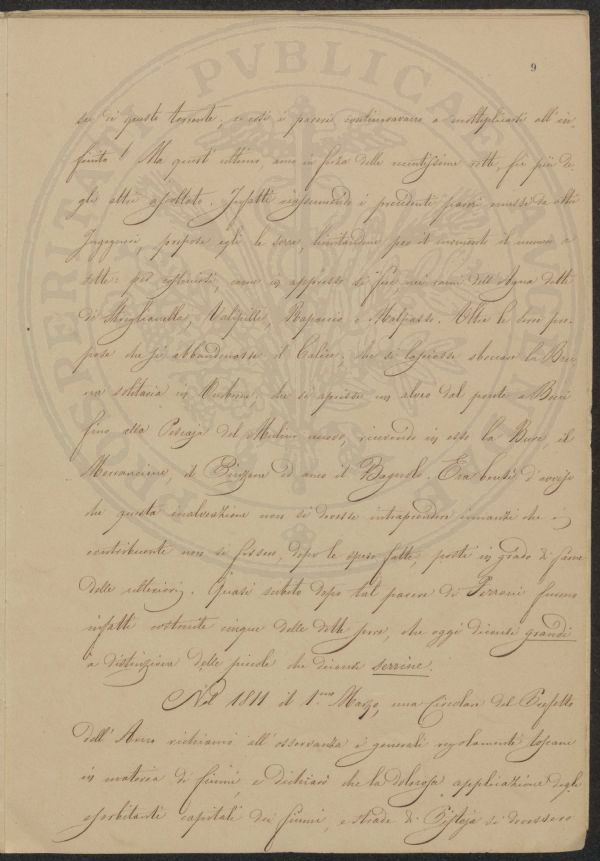 9
su di questo torrente, e così i pareri continuavano a moltiplicarsi all'in-
finito! Ma quest'ultimo, anco in forza delle recentissime rotte, fu più de-
gli altri ascoltato. Infatti riassumendo i precedenti pareri emessi da altri
Ingegneri, propose egli le serre, limitandone per il momento il numero a
sette: per costruirsi, come in appresso si fece nei rami dell'Agna detti
di Striglianella, Valpiille, e Malpasso. Oltre le serre pro-
pose che si abbandonasse il Calice; che si lasciasse sboccare la Bre-
na solitaria in Ombrone: che si aprisse un alveo dal ponte a Bocci
fino alla Pescaja del Molino nuovo, ricevendo in esso la Bure, il
il ed anco il Bagnolo. Era bensì d'avviso
che questa inalveazione non si dovesse intraprendere innanzi che i
contribuenti non si fossero, dopo le spese fatte, posti in grado di farne
delle ulteriori. Quasi subito dopo tal parere di furono
infatti costruite cinque delle dette serre, che oggi diconsi grandi
a distinzione delle piccole che diconsi serrine.
Nel 1811 il 1.mo Marzo, una Circolare del Prefetto
dell'Arno richiamò all'osservanza i generali regolamenti toscani
in materia di fiumi, e dichiarò che la dolorosa applicazione degli
esorbitanti capitali dei fiumi, e strade di Pistoja si dovessero
PROSPERITATI PVBLICAE AVGENDAE